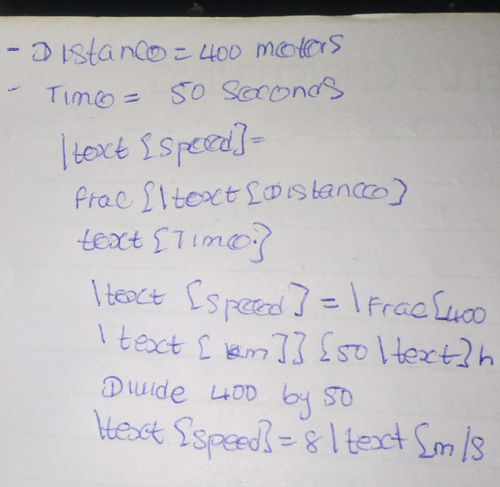 - Distance = 400 meters
- Time = 50 seconds
|text {speed}=
frac {|text {Distance}
text {Time.}
|text {speed} = | Frac {400
| text { km}} {50 | text} h
Divide 400 by 50
|text {speed} = 8 | text {m/s